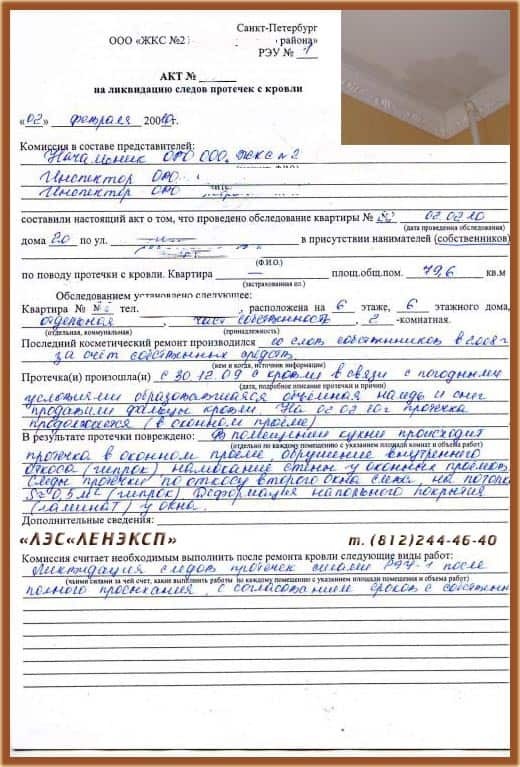 Санкт-Петербург
ООО «ЖКС №2 района»
РЭУ № 1
АКТ №
на ликвидацию следов протечек с кровли
«02» февраля 2010г.
Комиссия в составе представителей:
Начальник ОРО ООО ЖКС №2
Инспектор ОРО
Инспектор ОРО
составили настоящий акт о том, что проведено обследование квартиры № 02.02.10
(дата проведения обследования)
дома 20 по ул. в присутствии нанимателей (собственников)
(Ф.И.О.)
по поводу протечки с кровли. Квартира — площ.общ.пом. 79,6 кв.м
(застрахованная пл.)
Обследованием установлено следующее:
Квартира № тел. , расположена на 6 этаже, 6 этажного дома,
отдельная , част собственность , 2 -комнатная.
(отдельная, коммунальная) (принадлежность)
Последний косметический ремонт производился со слов собственников в 2008г
за счёт собственных средств
(кем и когда, источник информации)
Протечка(и) произошла(и) с 30.12.09 с кровли в связи с погодными
(дата, подробное описание протечки и причин)
условиями образовавшаяся объёмная наледь и снег
продавили фальцы кровли. На 02.02.10г протечка
продолжается (в оконном проёме)
В результате протечки повреждено: В помещении кухни происходит
(отдельно по каждому помещению с указанием площади комнат и объема работ)
протечка в оконном проёме, обрушение внутреннего
откоса (гипрок) намокание стены у оконных проёмов.
Следы протечки по откосу второго окна слева, на потолке
S=0,5м² (гипрок) Деформация напольного покрытия
(ламинат) у окна.
Дополнительные сведения:
«ЛЭС«ЛЕНЭКСП» т. (812)244-46-40
Комиссия считает необходимым выполнить после ремонта кровли следующие виды работ:
Ликвидация следов протечек силами РЭУ-1 после
(чьими силами за чей счет, какие выполнить работы по каждому помещению с указанием площади помещения и объема работ)
полного просыхания, с согласованием сроков с собственн